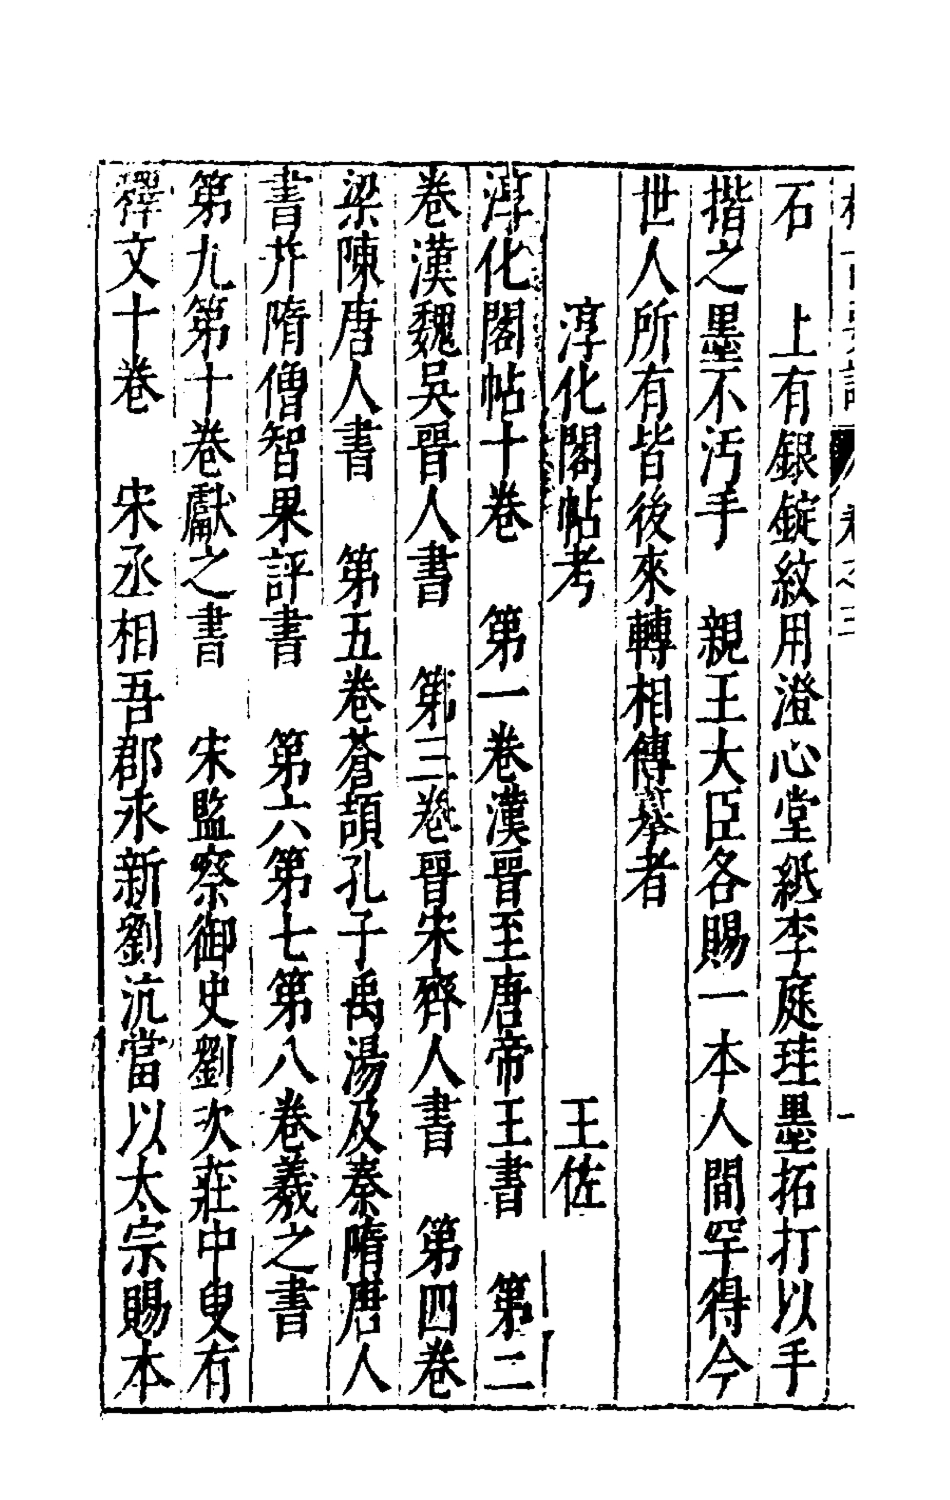 石　上有銀錠紋用澄心堂紙李庭珪墨拓打以手
揩之墨不污手　親王大臣各賜一本人間罕得今
世人所有皆後來轉相傳摹者
淳化閣帖考　王佐
淳化閣帖十卷　第一卷漢晉至唐帝王書　第二
卷漢魏吳晉人書　第三卷晉宋齊人書　第四卷
梁陳唐人書　第五卷蒼頡孔子禹湯及秦隋唐人
書并隋僧智果評書　第六第七第八卷羲之書
第九第十卷獻之書　宋監察御史劉次莊中叟有
釋文十卷　宋丞相吾郡永新劉沆當以太宗賜本